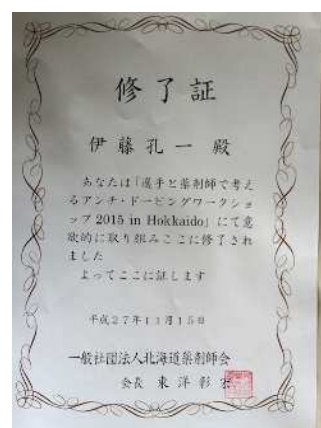 修了証
伊藤孔一 殿
あなたは「選手と薬剤師で考え
るアンチ・ドーピングワークショ
ップ 2015 in Hokkaido」にて意
欲的に取り組みここに修了され
ました
よってここに証します
平成27年11月15日
一般社団法人北海道薬剤師会
会長 東 洋 彰 宏